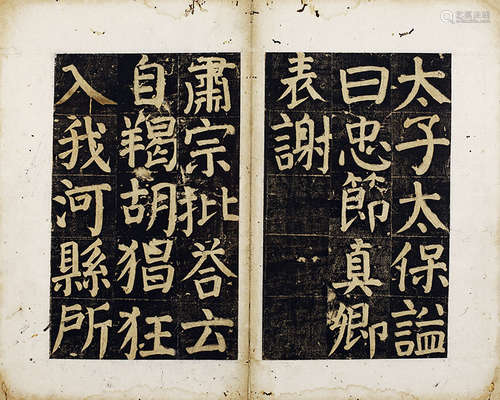 太子太保謚
曰忠節真卿
表謝
肅宗批荅云
自羯胡猖狂
入我河縣所